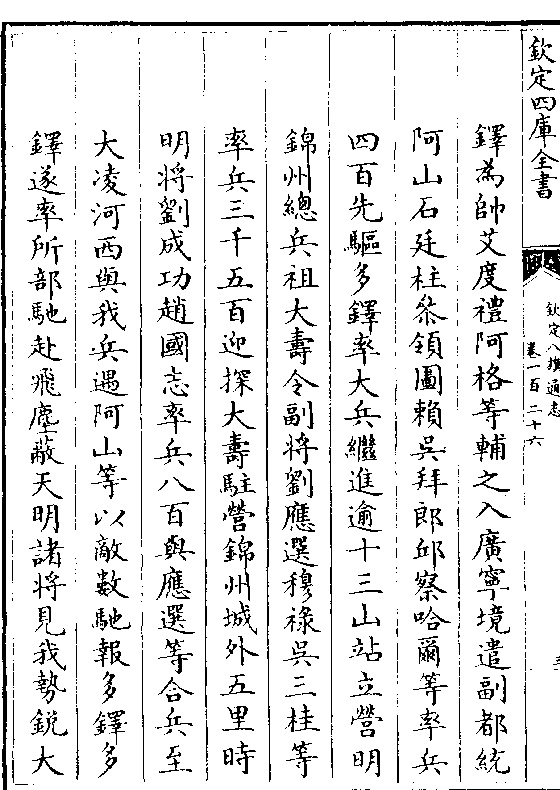 欽定四庫全書
欽定八旗通志
卷一百二十六
鐸為帥艾度禮阿格等輔之入廣寧境遣副都統
阿山石廷柱叅領圖賴吳拜郎邱察哈爾等率兵
四百先驅多鐸率大兵繼進逾十三山站立營明
錦州總兵祖大壽令副將劉應選穆祿吳三桂等
率兵三千五百迎探大壽駐營錦州城外五里時
明將劉成功趙國志率兵八百與應選等合兵至
大凌河西與我兵遇阿山等以敵數馳報多鐸多
鐸遂率所部馳赴飛塵蔽天明諸將見我勢銳大